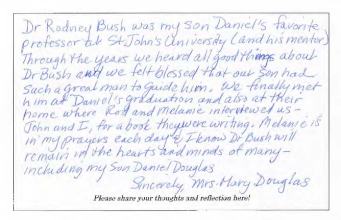 Dr Rodney Bush was my son Daniel's favorite
professor at St John's University (and his mentor)
Through the years we heard all good things about
Dr Bush and we felt blessed that our son had
such a great man to guide him. We finally met
him at Daniel's graduation and also at their
home where Rod and Melanie interviewed us -
John and I, for a book they were writing. Melanie is
in my prayers each day & I know Dr Bush will
remain in the hearts and minds of many -
including my son Daniel Douglas
Sincerely, Mrs. Mary Douglas
Please share your thoughts and reflection here!